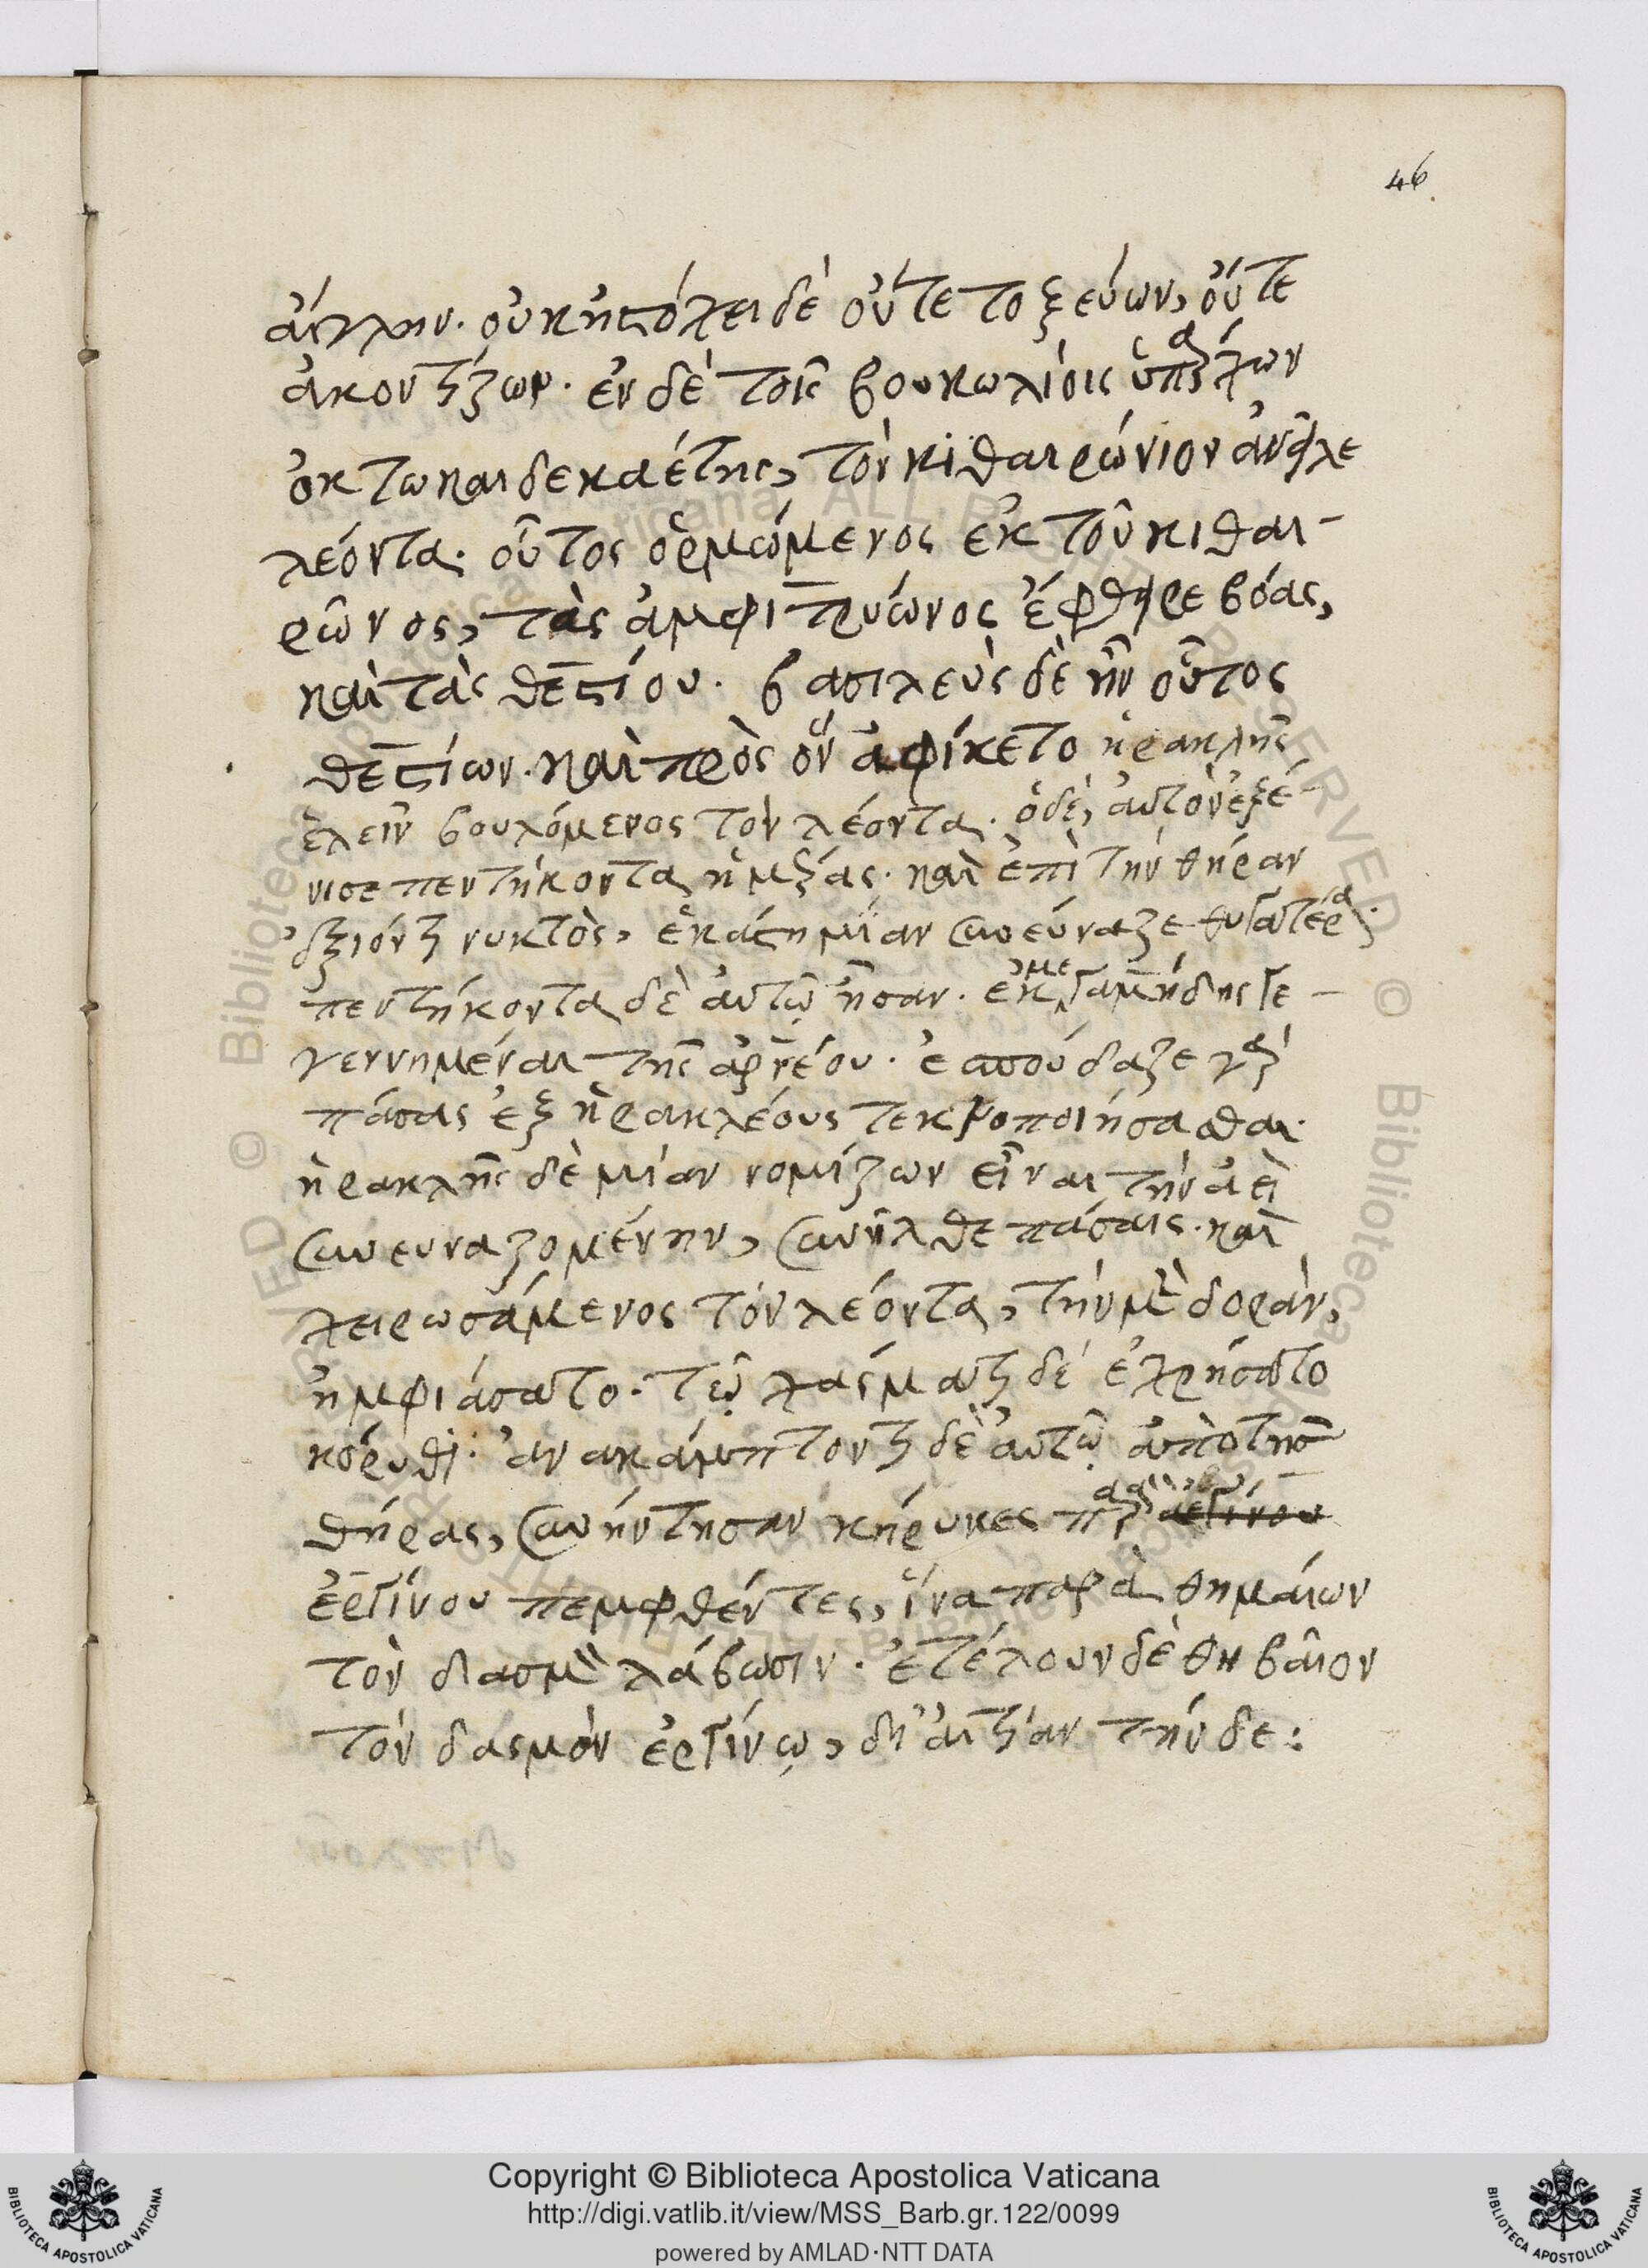 46.
αἴγλην. οὐκ ἠστόχει δὲ οὔτε τοξεύων, οὔτε
ἀκοντίζων. ἐν δὲ τοῖς βουκολίοις ὑπάρχων
ὀκτωκαιδεκαέτης, τὸν κιθαιρώνιον ἀνεῖλε
λέοντα. οὗτος ὁρμώμενος ἐκ τοῦ κιθαι-
ρῶνος, τὰς ἀμφιτρύωνος ἔφθειρε βόας,
καὶ τὰς θεστίου. βασιλεὺς δὲ ἦν οὗτος
θεστίων. καὶ πρὸς ὃν ἀφίκετο ἡρακλῆς
ἑλεῖν βουλόμενος τὸν λέοντα. ὁ δὲ, αὐτὸν ἐξέ-
νισε πεντήκοντα ἡμέρας. καὶ ἐπὶ τὴν θήραν
ἐξιόντι νυκτὸς, ἑκάστη μίαν συνεύναζε θυγατέρα.
πεντήκοντα δὲ αὐτῷ ἦσαν. ἐκ μεγαμήδης γε-
γεννημέναι τῆς ἀρνέου. ἐσπούδαζε γὰρ
πάσας ἐξ ἡρακλέους τεκνοποιήσασθαι.
ἡρακλῆς δὲ μίαν νομίζων εἶναι τὴν ἀεὶ
συνευναζομένην, συνῆλθε πάσαις. καὶ
χειρωσάμενος τὸν λέοντα, τὴν μὲν δορὰν,
ἠμφιάσατο. τῷ χάσματι δὲ ἐχρήσατο
κόρυθι. ἀνακάμπτοντι δὲ αὐτῷ ἀπὸ τῆς
θήρας, συνήντησαν κήρυκες παρὰ
ἐργίνου πεμφθέντες, ἵνα παρὰ θημαίων
τὸν δασμὸν λάβωσιν. ἐτέλουν δὲ θηβαῖον
τὸν δασμὸν ἐργίνῳ, δι' αἰτίαν τήνδε:
Copyright © Biblioteca Apostolica Vaticana
http://digi.vatlib.it/view/MSS_Barb.gr.122/0099
powered by AMLAD·NTT DATA
BIBLIOTECA APOSTOLICA VATICANA
BIBLIOTECA APOSTOLICA VATICANA